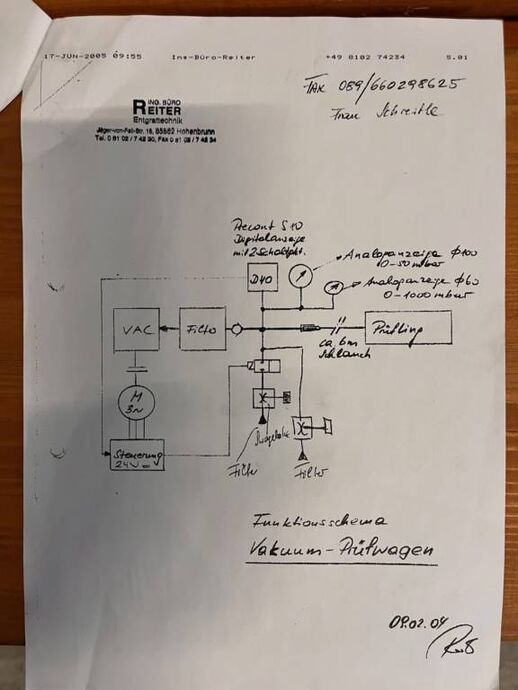 17-JUN-2005 09:55 Ing-Büro-Reiter +49 8102 74234 S.01
FAX 089/660298625
Frau
ING. BÜRO
REITER
Entgrattechnik
Jäger-von-Fall-Str. 16, 85662 Hohenbrunn
Tel. 0 81 02 / 7 42 30, FAX 0 81 02 / 7 42 34
Precont S10
Digitalanzeige
mit 2 Schaltpkt.
Analoganzeige Φ100
0-50 mbar
Analoganzeige Φ60
0-1000 mbar
VAC
Filter
Prüfling
ca. 6m
Schlauch
M
3~
Steuerung
24V
Filter
Filter
Funktionsschema
Vakuum-Prüfwagen
09.02.04